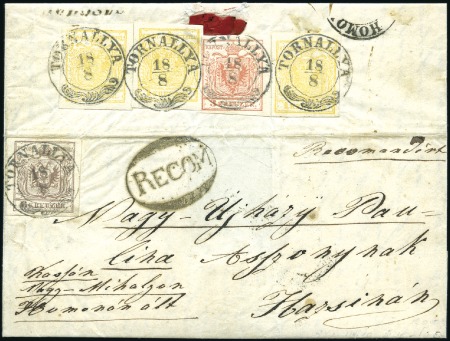 HOMO
TORNALLYA
18
8
TORNALLYA
18
8
TORNALLYA
18
8
TORNALLYA
18
8
TORNALLYA
18
RECOM
Recomandirt
Nagy-Ujházy Pau-
lina Asszonynak
Kassán
Nagy-Mihalyon
Homonán ált